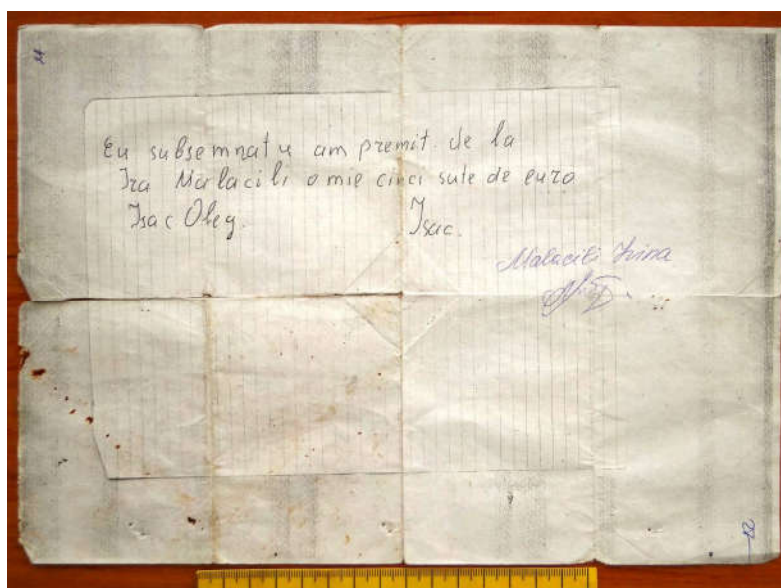 Eu subsemnatu am premit de la
Ira Malacili o mie cinci sute de euro
Isac Oleg. Isac.
Malacili Irina